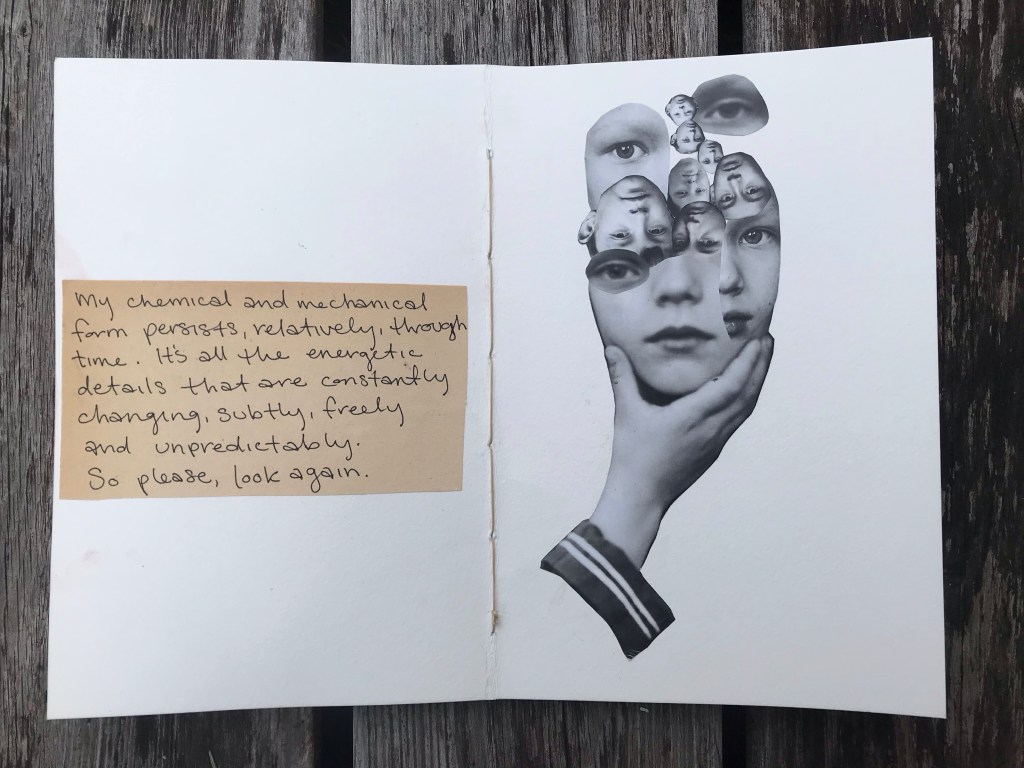 My chemical and mechanical
form persists, relatively, through
time. It's all the energetic
details that are constantly
changing, subtly, freely
and unpredictably.
So please, look again.